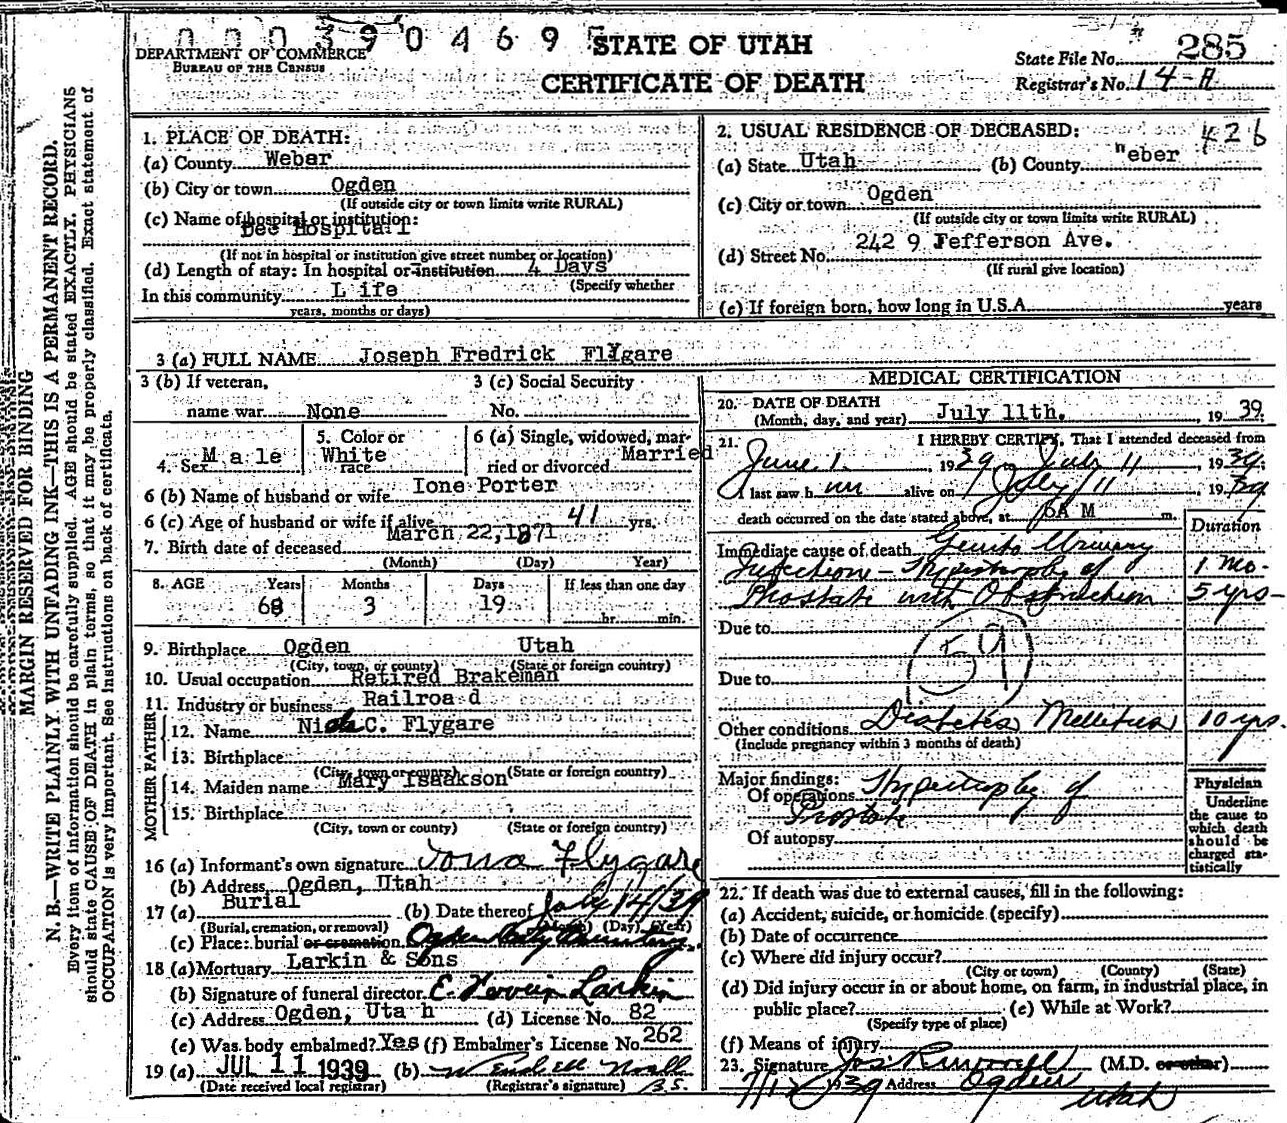 000390469
STATE OF UTAH
CERTIFICATE OF DEATH
DEPARTMENT OF COMMERCE
BUREAU OF THE CENSUS
State File No. 285
Registrar's No. 14-A
MARGIN RESERVED FOR BINDING
N. B.—WRITE PLAINLY WITH UNFADING INK—THIS IS A PERMANENT RECORD.
Every item of information should be carefully supplied. AGE should be stated EXACTLY. PHYSICIANS
should state CAUSE OF DEATH in plain terms, so that it may be properly classified. Exact statement of
OCCUPATION is very important. See instructions on back of certificate.
1. PLACE OF DEATH:
(a) County Weber
(b) City or town Ogden
(If outside city or town limits write RURAL)
(c) Name of hospital or institution:
Dee Hospital
(If not in hospital or institution give street number or location)
(d) Length of stay: In hospital or institution 4 Days
(Specify whether
In this community Life
years, months or days)
2. USUAL RESIDENCE OF DECEASED: 426
(a) State Utah (b) County Weber
(c) City or town Ogden
(If outside city or town limits write RURAL)
(d) Street No. 242 9 Jefferson Ave.
(If rural give location)
(e) If foreign born, how long in U.S.A. years
3 (a) FULL NAME Joseph Fredrick Flygare
3 (b) If veteran, name war None
3 (c) Social Security No.
4. Sex Male
5. Color or race White
6 (a) Single, widowed, married or divorced Married
6 (b) Name of husband or wife Ione Porter
6 (c) Age of husband or wife if alive 41 yrs.
7. Birth date of deceased March 22, 1871
(Month) (Day) Year)
8. AGE Years Months Days If less than one day
68 3 19 hr. min.
9. Birthplace Ogden Utah
(City, town, or county) (State or foreign country)
10. Usual occupation Retired Brakeman
11. Industry or business Railroad
FATHER
12. Name Niels C. Flygare
13. Birthplace
(City, town or county) (State or foreign country)
MOTHER
14. Maiden name Mary Isaakson
15. Birthplace
(City, town or county) (State or foreign country)
16 (a) Informant's own signature Iona Flygare
(b) Address Ogden, Utah
17 (a) Burial (b) Date thereof July 14/39
(Burial, cremation, or removal) (Month) (Day) (Year)
(c) Place: burial or cremation. Ogden City
18 (a) Mortuary Larkin & Sons
(b) Signature of funeral director E. Larkin
(c) Address Ogden, Utah (d) License No. 82
(e) Was body embalmed? Yes (f) Embalmer's License No. 262
19 (a) JUL 11 1939 (b)
(Date received local registrar) (Registrar's signature)
MEDICAL CERTIFICATION
20. DATE OF DEATH
(Month, day, and year) July 11th, 1939
21. I HEREBY CERTIFY, That I attended deceased from
June 1, 1939 July 11, 1939
I last saw h im alive on July 11, 1939
death occurred on the date stated above, at 6A M m.
Duration
Immediate cause of death Genito Urinary
Infection - Hypertrophy of 1 mo.
Prostate with Obstruction 5 yrs
Due to
59
Due to
Other conditions Diabetes Mellitus 10 yrs.
(Include pregnancy within 3 months of death)
Major findings:
Of operations Hypertrophy of
Prostate
Of autopsy
Physician
Underline
the cause to
which death
should be
charged sta-
tistically
22. If death was due to external causes, fill in the following:
(a) Accident, suicide, or homicide (specify)
(b) Date of occurrence
(c) Where did injury occur?
(City or town) (County) (State)
(d) Did injury occur in or about home, on farm, in industrial place, in
public place? (e) While at Work?
(Specify type of place)
(f) Means of injury
23. Signature (M.D. or other)
7/12 1939 Address Ogden
Utah